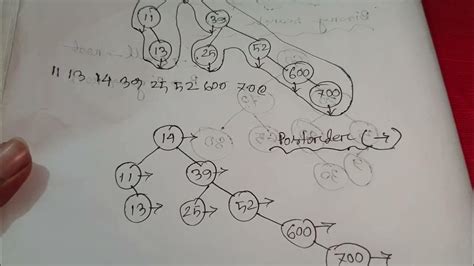 11 39
13 25 52
600
700
11 13 14 39 25 52 600 700
Postorider (→)
14
11 39
13 25 52
600
700